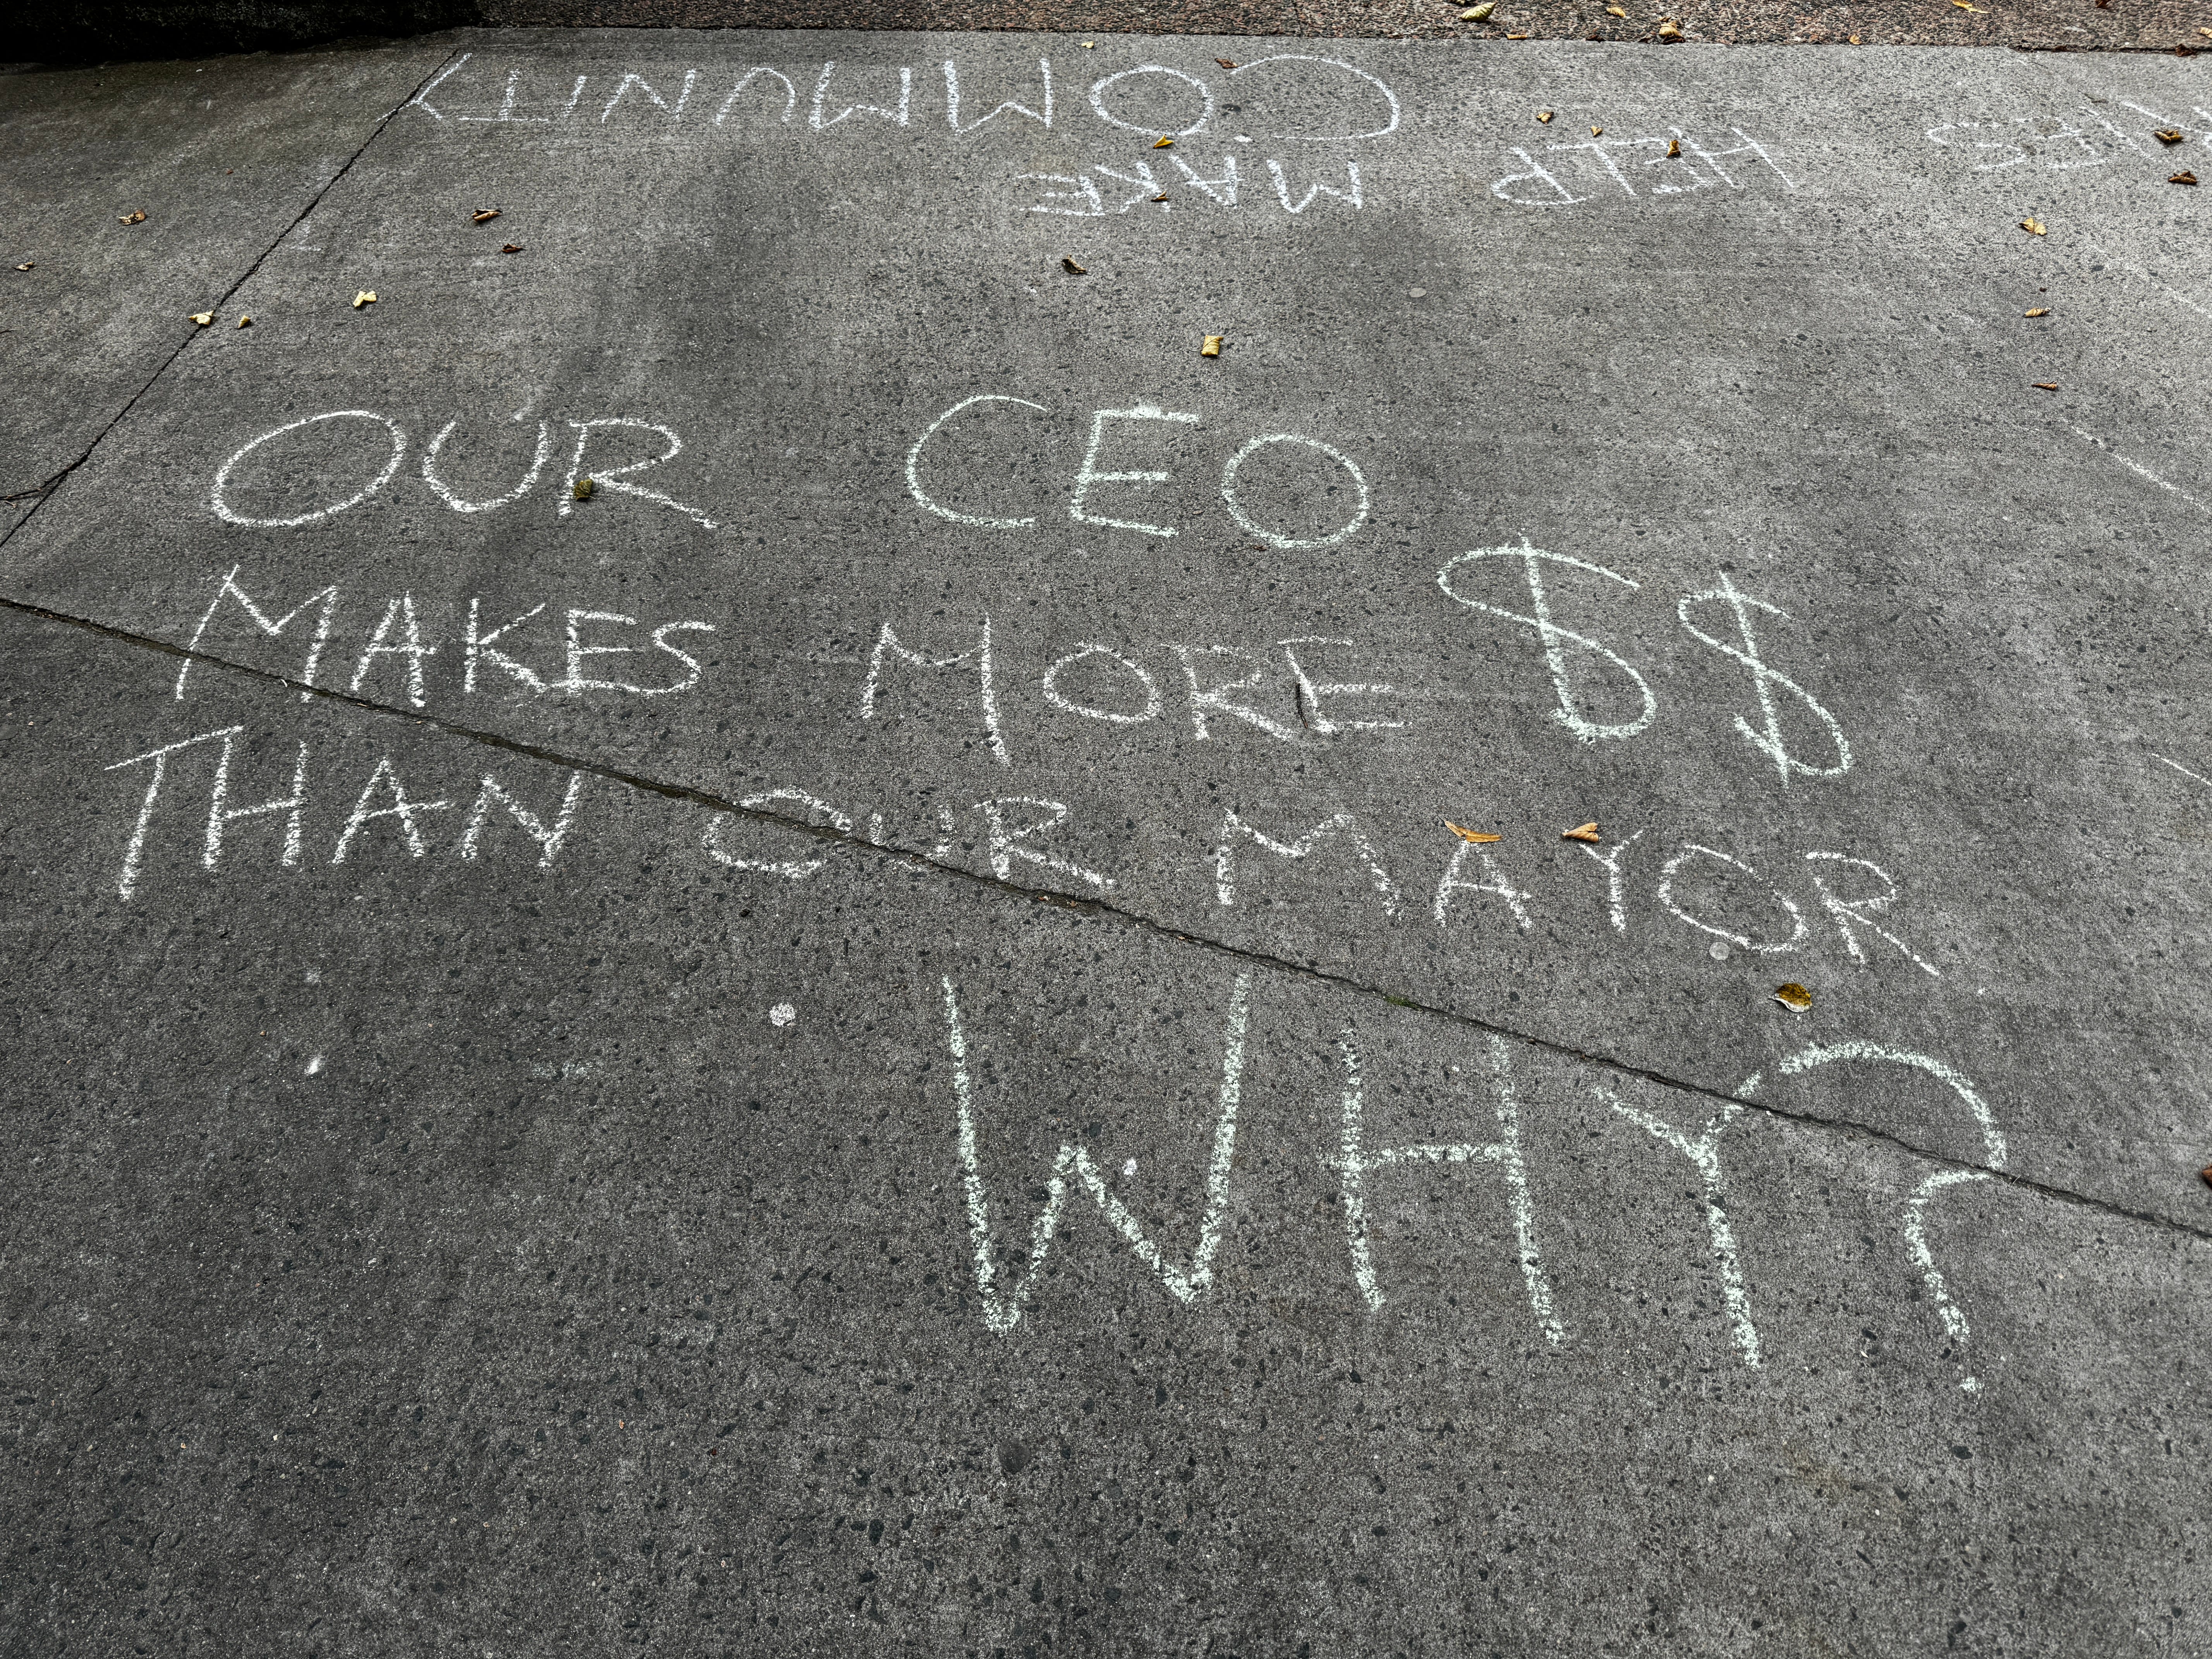 OUR CEO
MAKES MORE $$
THAN OUR MAYOR
WHY?
HELP MAKE
COMMUNITY